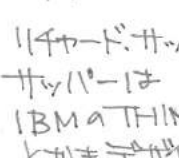 リチャード・サッ
サッパーは
IBMのTHIN